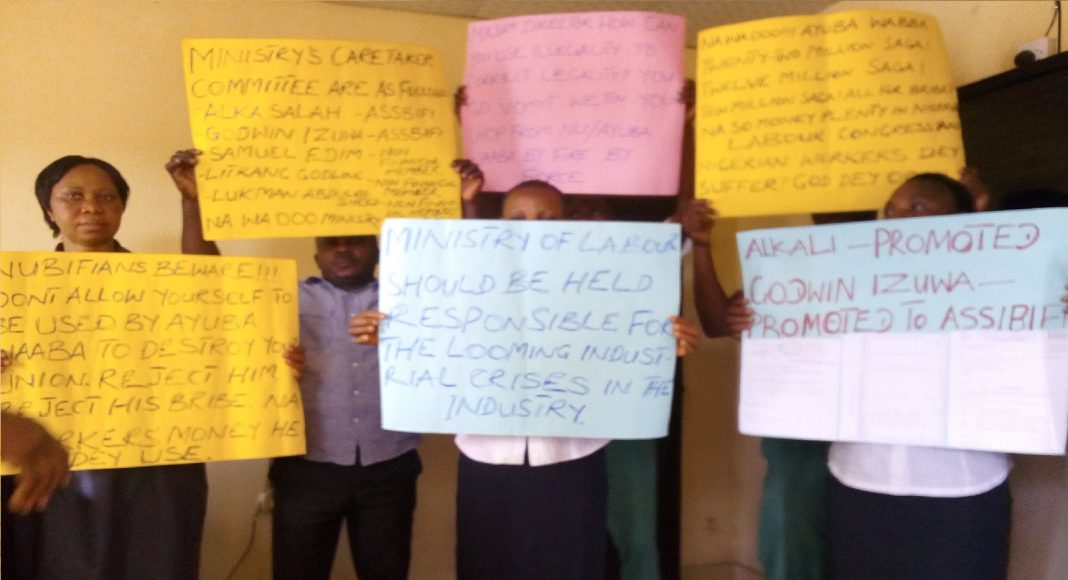 MINISTRY'S CARETAKER
COMMITTEE ARE AS FOLLOW
-ALKASALAH -ASSBIFI
-GODWIN IZUWA-ASSBIFI
-SAMUEL EDIM - NON
FINANCIAL
MEMBER
-LITKANC GODLINC - NON FINANCIAL
MEMBER
-LUKMAN
NA WA OOO MINISTRY
DIRECTOR HOW CAN
USE ILLEGALITY TO
LEGALITY? YOU
VOMIT WETIN YOU
CHOP FROM NLC/AYUBA
WAABA BY FIRE BY
FORCE
NA WA OOO!! AYUBA WABBA
TWENTY-TWO MILLION SAGA!
TWELVE MILLION SAGA!
MILLION SAGA! ALL FOR BRIBE
NA SO MONEY PLENTY IN NIGERIA
LABOUR CONGRESS AND
NIGERIAN WORKERS DEY
SUFFER? GOD DEY O
NUBIFIANS BEWARE!!!
DONT ALLOW YOURSELF TO
BE USED BY AYUBA
WAABA TO DESTROY YOU
UNION. REJECT HIM,
REJECT HIS BRIBE. NA
RKERS MONEY HE
DEY USE.
MINISTRY OF LABOUR
SHOULD BE HELD
RESPONSIBLE FOR
THE LOOMING INDUST-
RIAL CRISES IN THE
INDUSTRY.
ALKALI - PROMOTED
GODWIN IZUWA-
PROMOTED TO ASSIBIF